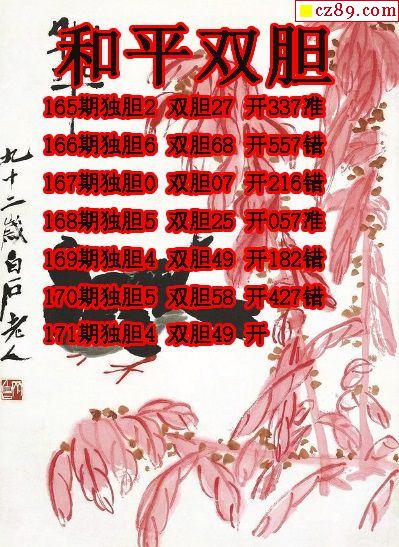 cz89.com
和平双胆
165期独胆2 双胆27 开337准
166期独胆6 双胆68 开557错
167期独胆0 双胆07 开216错
168期独胆5 双胆25 开057准
169期独胆4 双胆49 开182错
170期独胆5 双胆58 开427错
171期独胆4 双胆49 开
九十二岁白石老人